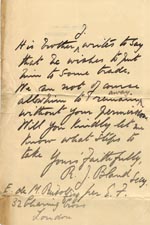 2.
His brother writes to say
that he wishes to put
him to some trade.
We can not of course
allow him to remain away
without your permission
Will you kindly let me
know what steps to
take
Yours faithfully,
R J Bland
Secy.
E. de M. Rudolf
32 Charing Cross
London